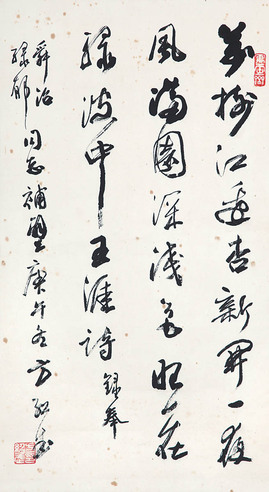 萬樹江邊杏新開一夜
風滿園深淺色照在
綠波中王涯詩錄奉
舜治
同志補壁庚午冬方毅